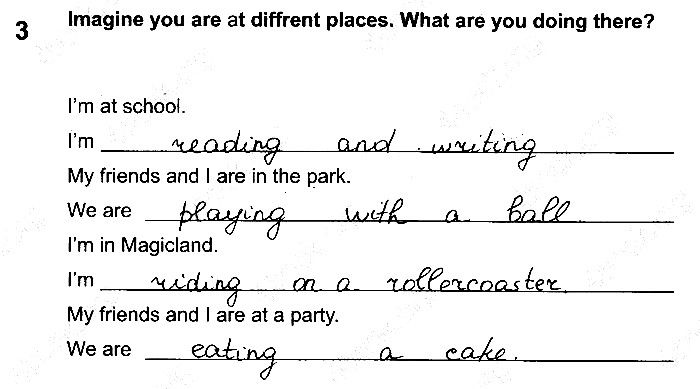 3 Imagine you are at diffrent places. What are you doing there?
I'm at school.
I'm reading and writing
My friends and I are in the park.
We are playing with a ball.
I'm in Magicland.
I'm riding on a rollercoaster.
My friends and I are at a party.
We are eating a cake.